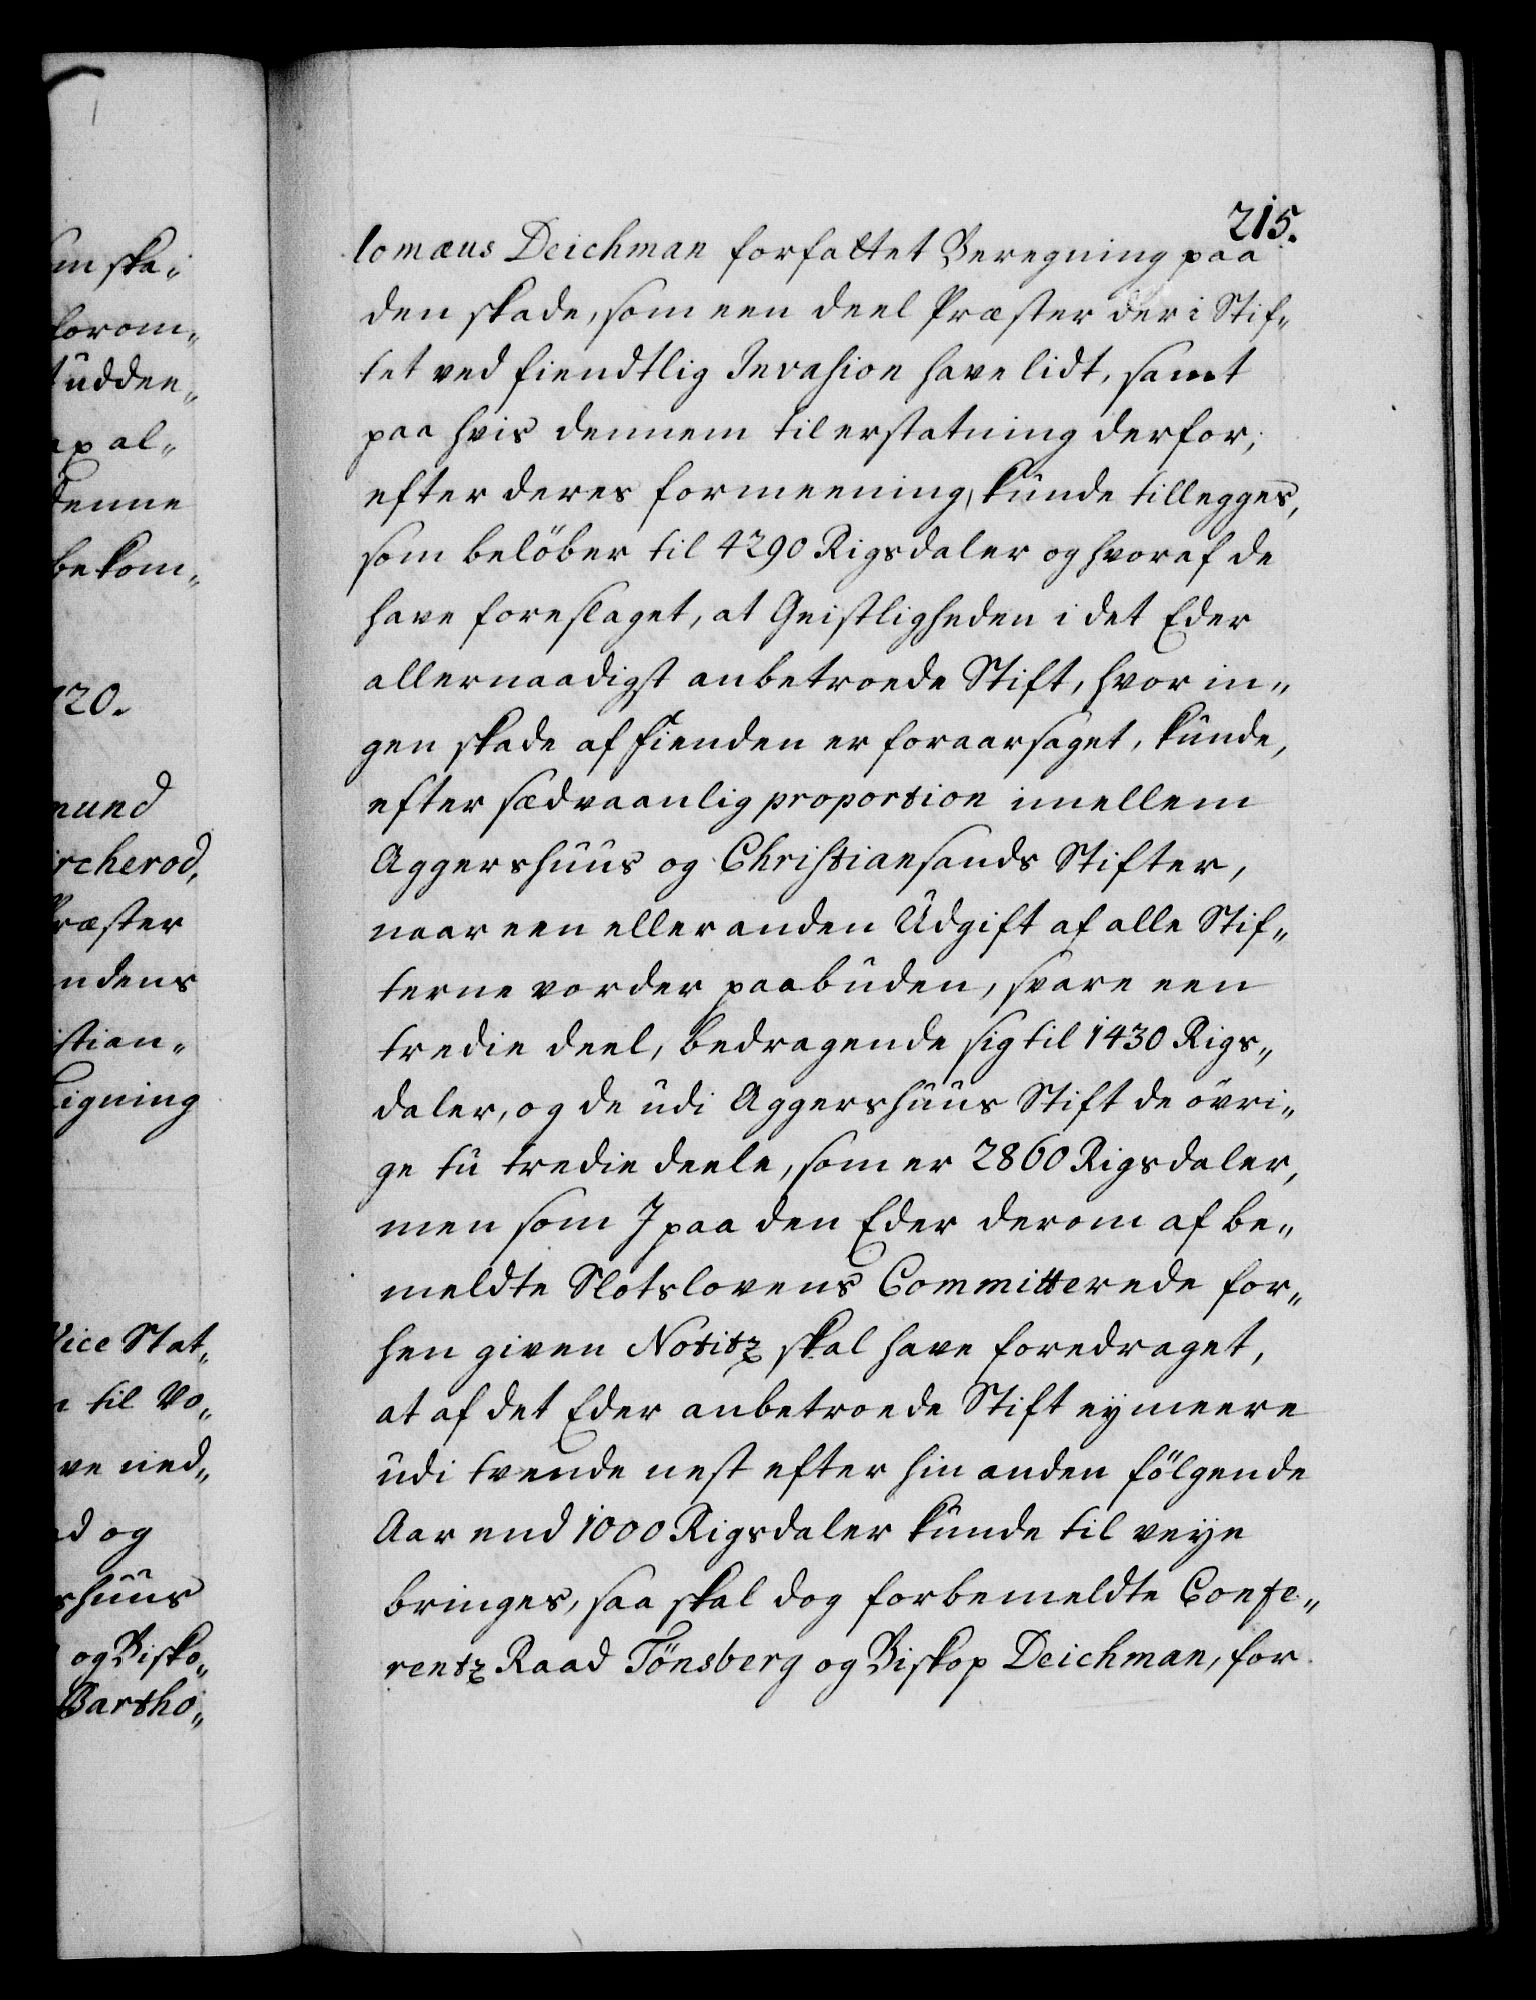 215.
lomæus Deichman forfattet Beregning paa
den skade, som een deel Præster der i Stif„
tet ved fiendtlig Invasion have lidt, samt
paa hvis dennem til erstatning derfor,
efter deres formeening, kunde tillegges,
som beløber til 4290 Rigsdaler og hvoraf de
have foreslaget, at Geistligheden i det Eder
allernaadigst anbetroede Stift, hvor in„
gen skade af fienden er foraarsaget, kunde,
efter sædvaanlig proportion imellem
Aggershuus og Christiansands Stifter,
naar een eller anden Udgift af alle Stif„
terne vorder paabuden, svare een
tredie deel, bedragende sig til 1430 Rigs„
daler, og de udi Aggershuus Stift de øvri„
ge tu tredie deele, som er 2860 Rigsdaler,
men som I paa den Eder derom af be„
meldte Slotslovens Committerede for„
hen given Notitz skal have foredraget,
at af det Eder anbetroede Stift ey meere
udi tvende nest efter hin anden følgende
Aar end 1000 Rigsdaler kunde til veye
bringes, saa skal dog forbemeldte Confe„
rentz Raad Tønsberg og Biskop Deichman, for
um ska„
lorom„
udden„
al„
denne
bekom„
720.
mund
rcherod,
Præster
ndens
istian„
Ligning
Vice Stat„
til Vo„
ve ned„
d og
shuus
og Bisko„
Bartho„